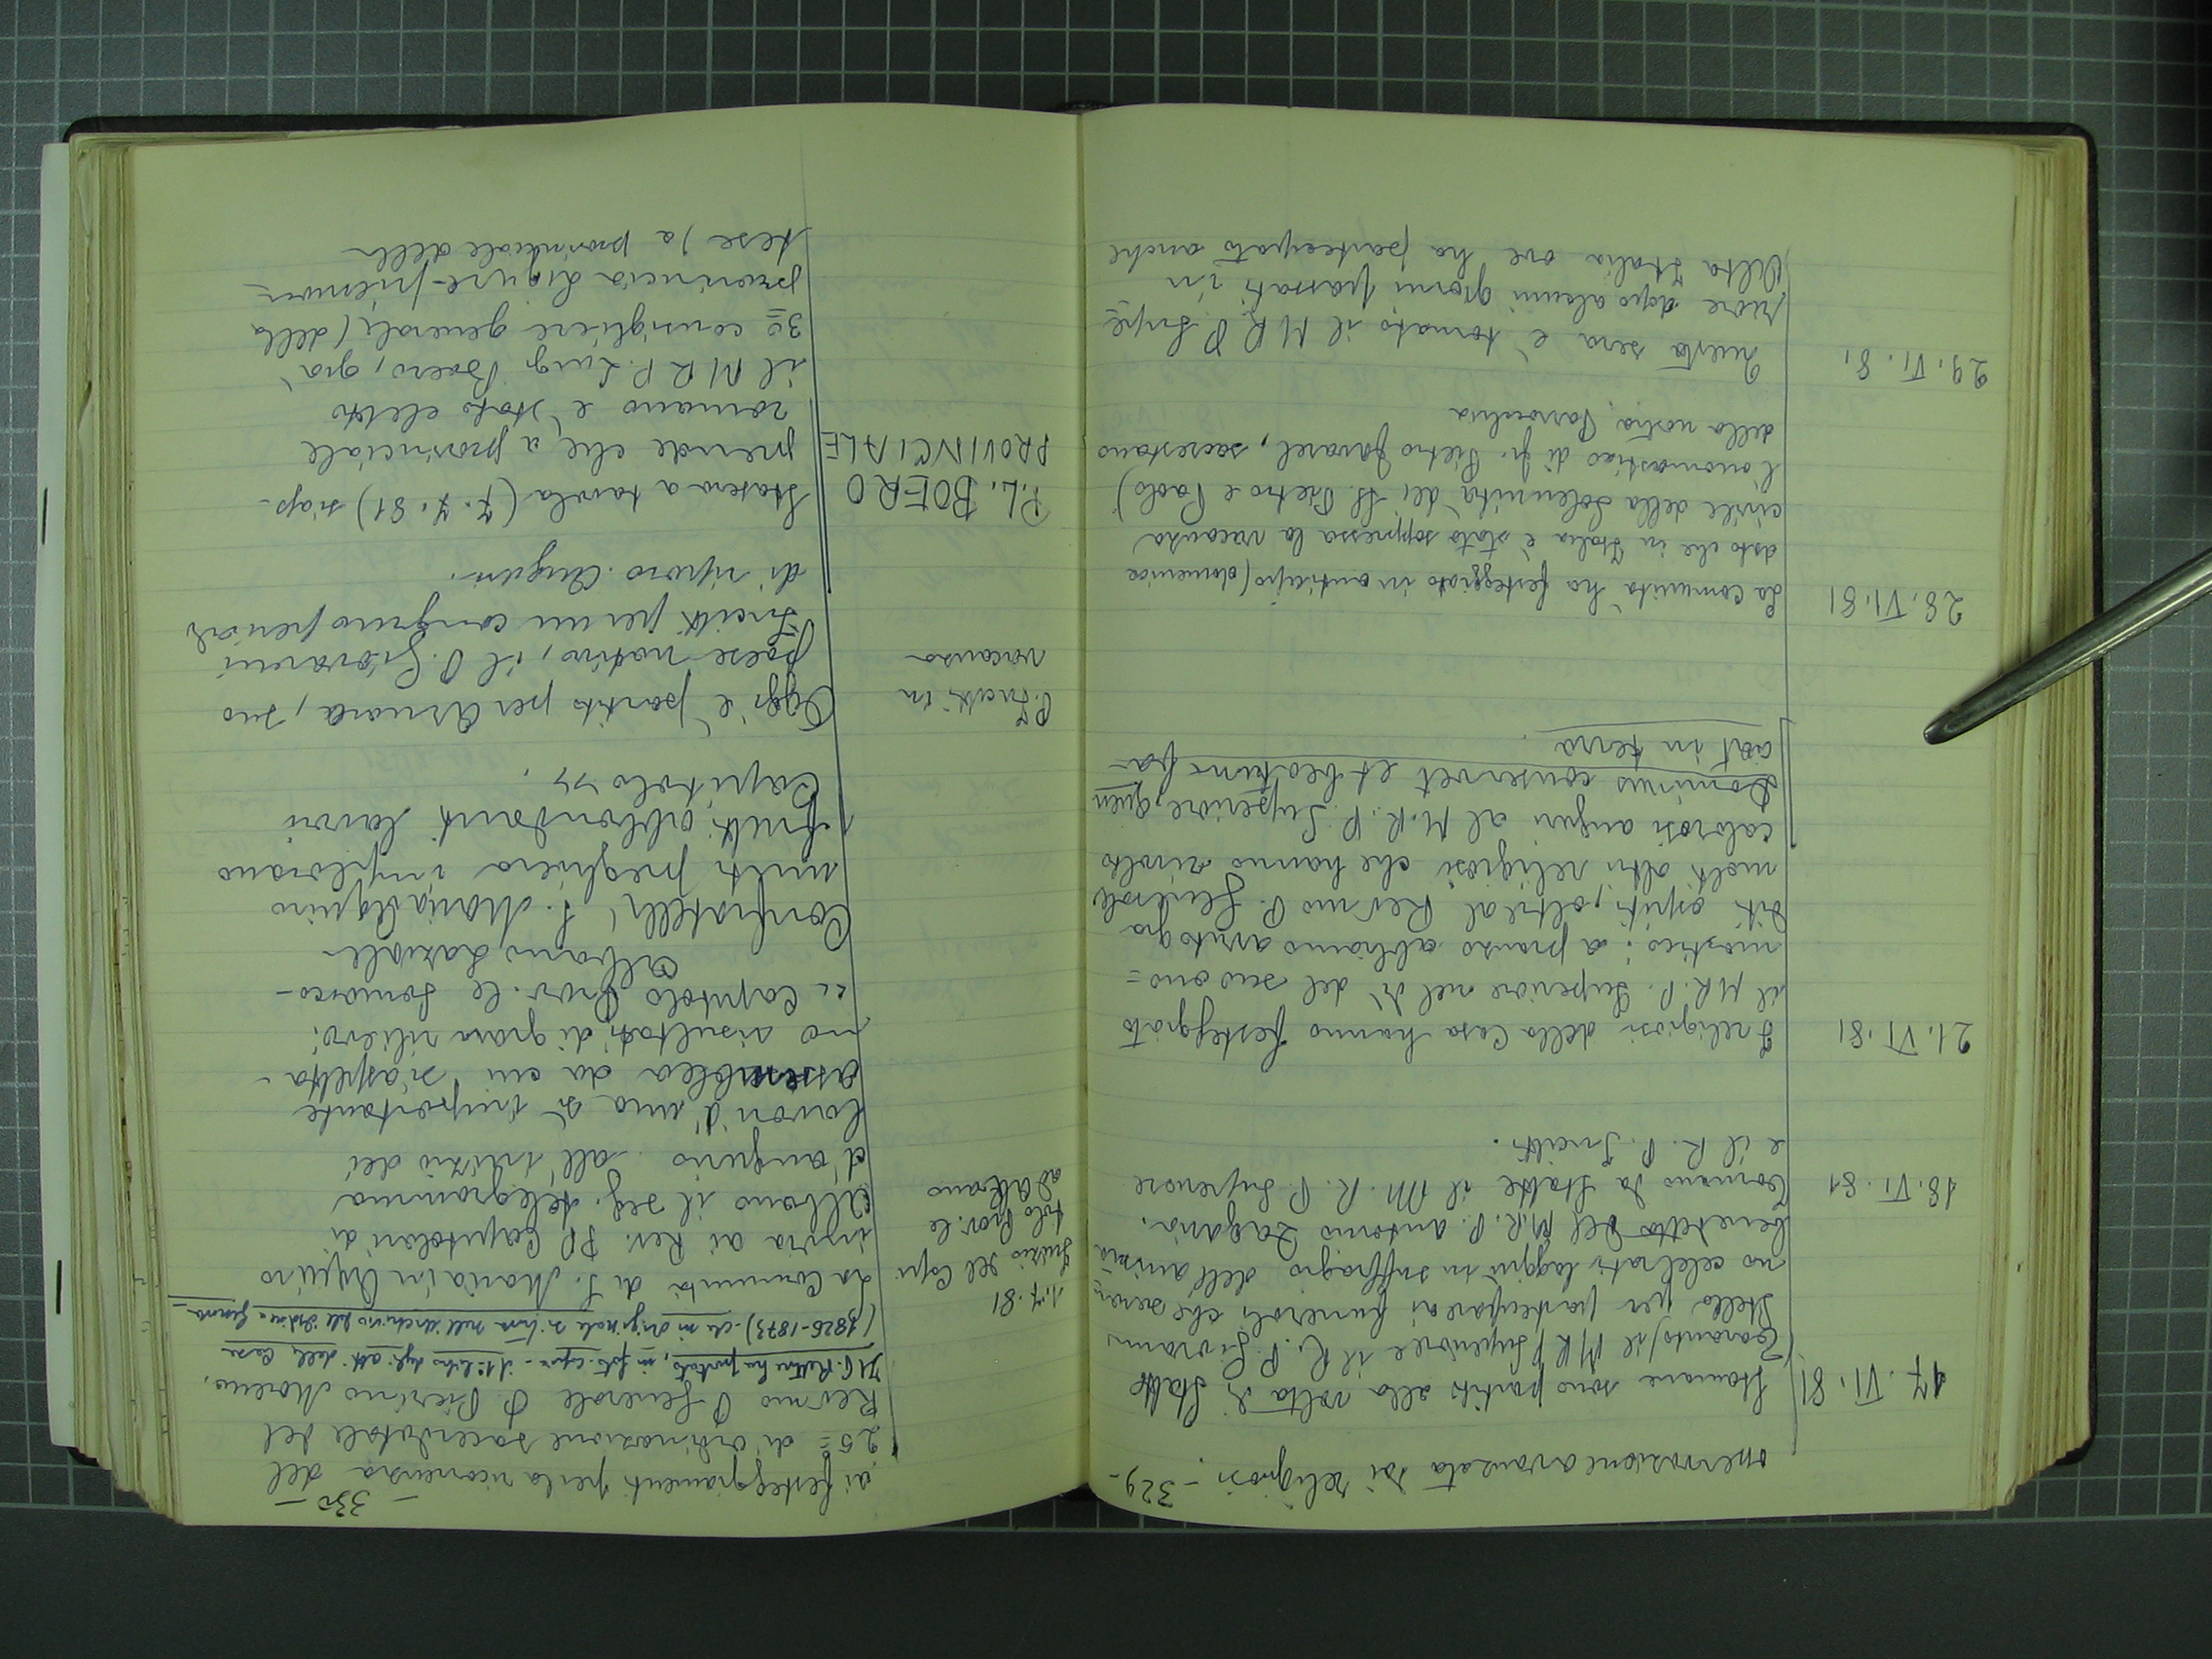 operazione avanzata dai religiosi. - 329 -
17. VI. 81
Stamane sono partiti alla volta di Statte
(Taranto) il MRP Superiore e il R. P. Giovanni
Stella per partecipare ai funerali che saran=
no celebrati laggiù in suffragio dell'anima
benedetta del M.R.P. Antonio Zagaria.
18. VI. 81
Tornano da Statte il M. R. P. Superiore
e il R. P. Incitti.
21. VI. 81
I religiosi della Casa hanno festeggiato
il M.R.P. Superiore nel dì del suo ono=
mastico: a pranzo abbiamo avuto gra
diti ospiti, oltre al Rev.mo P. Generale
molti altri religiosi che hanno rivolto
calorosi auguri al M.R.P. Superiore, quem
Dominus conservet et beatum fa-
ciat in terra.
28. VI. 81
La comunità ha festeggiato in anticipo (domenica
dato che in Italia è stata soppressa la vacanza
civile della solennità dei SS. Pietro e Paolo)
l'onomastico di fr. Pietro Gavarel, sacrestano
della nostra Parrocchia
29. VI. 81
Questa sera è tornato il M R P Supe
riore dopo alcuni giorni passati in
Alta Italia ove ha partecipato anche
- 330 -
ai festeggiamenti per la ricorrenza del
25º di ordinazione sacerdotale del
Rev.mo P Generale P. Pierino Moreno.
Il P. Rettore ha portato, in foto-copia - il 1º libro degli atti della Casa
(1826-1873) - che in originale si trova nell'Archivio dell'Ordine Genova -
1.7.81
Inizio del Capi
tolo Prov.le
ad Albano
La Comunità di S. Maria in Aquiro
invia ai Rev. PP Capitolari di
Albano il seg. telegramma
d'augurio all'inizio dei
lavori d'una sì importante
assemblea da cui s'aspetta-
no risultati di gran rilievo:
"Capitolo Prov.le Somasco -
Albano Laziale
Confratelli S. Maria Aquiro
uniti preghiera implorano
frutti abbondanti lavori
Capitolo".
P. Incitti in
vacanza
Oggi è partito per Arnara, suo
paese nativo, il P. Giovanni
Incitti per un congruo periodo
di riposo. Auguri.
P.L. BOERO
PROVINCIALE
Stasera a tavola (7.7.81) s'ap-
prende che a provinciale
romano è stato eletto
il M R P. Luigi Boero, già
3º consigliere generale (della
provincia Ligure-piemon=
tese) a provinciale della